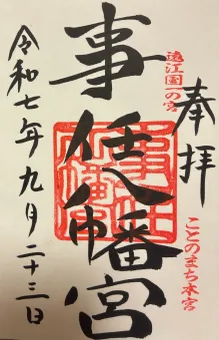 奉拝
遠江国一の宮
ことのまち本宮
事任八幡宮
令和七年九月二十三日